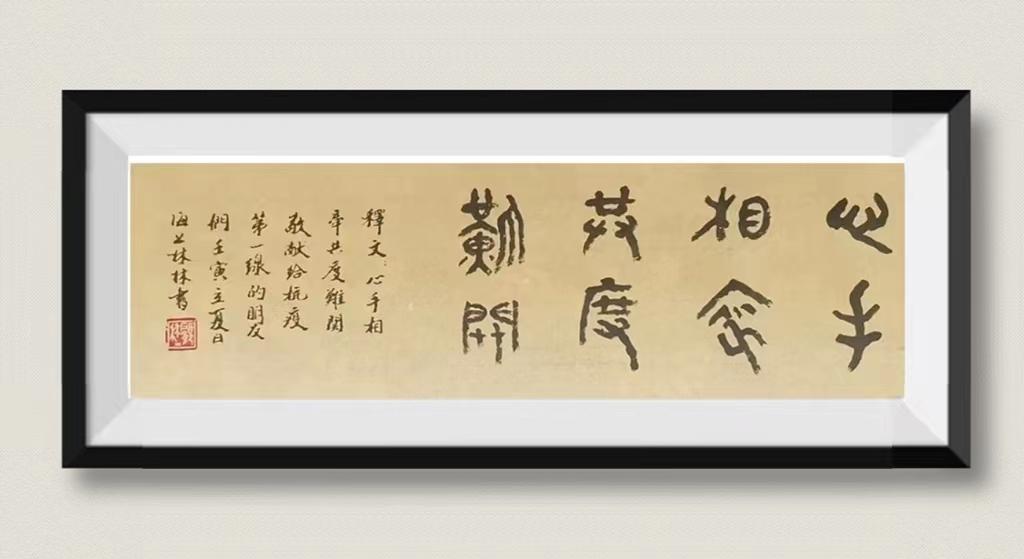 心手
相牵
共度
難關
釋文：心手相
牵共度難関
敬献给抗疫
第一線的朋友
们壬寅立夏日
海上林林書